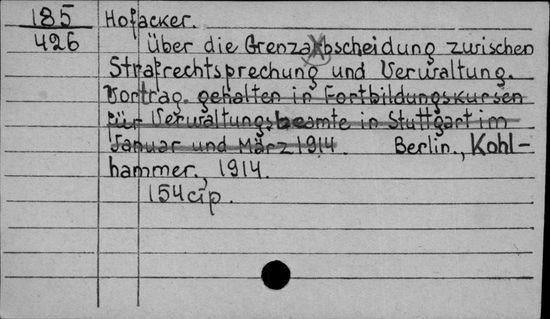 185 Hofacker.
426 Über die Grenzabscheidung zwischen
Strafrechtsprechung und Verwaltung.
Vortrag. gehalten in Fortbildungskursen
für Verwaltungsbeamte in Stuttgart im
Januar und März 1914. Berlin., Kohl-
hammer., 1914.
154 стр.